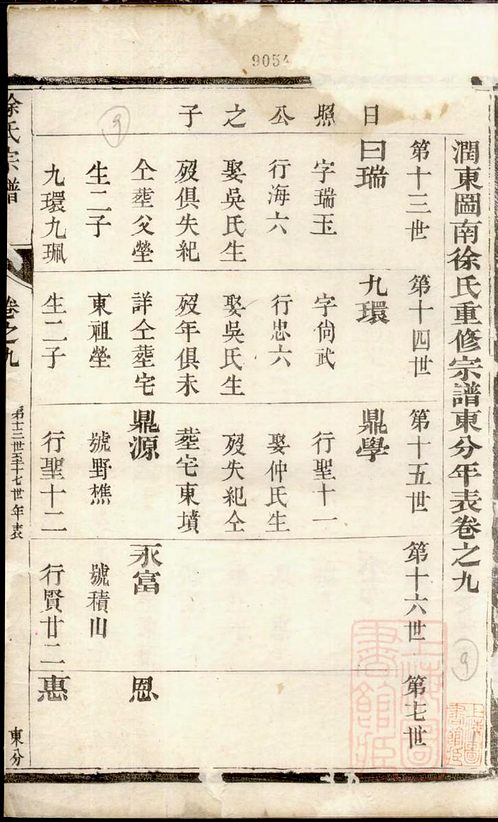 9054
潤東圖南徐氏重修宗譜東分年表卷之九
第十三世 第十四世 第十五世 第十六世 第七世
日 曰瑞 九環 鼎學
照 字瑞玉 字尙武 行聖十一
公 行海六 行忠六 娶仲氏生
之 娶吳氏生 娶吳氏生 歿失紀仝
子 歿俱失紀 歿年俱未 塟宅東墳
仝塟父塋 詳仝塟宅 鼎源 永富 恩
生二子 東祖塋 號野樵 號積山
九環九珮 生二子 行聖十二 行賢廿二 惠
徐氏宗譜 卷之九 第十三世至十七世年表 東分
9
9